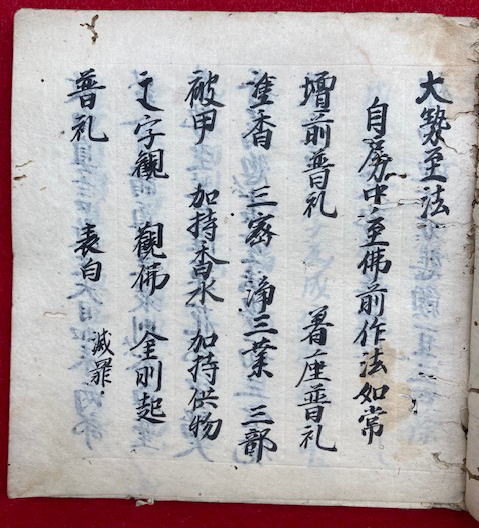 大勢至法
自房中至佛前作法如常
壇前普礼 着座普礼
塗香 三密 浄三業 三部
被甲 加持香水 加持供物
文字觀 觀佛 金剛起
普礼 表白 滅罪